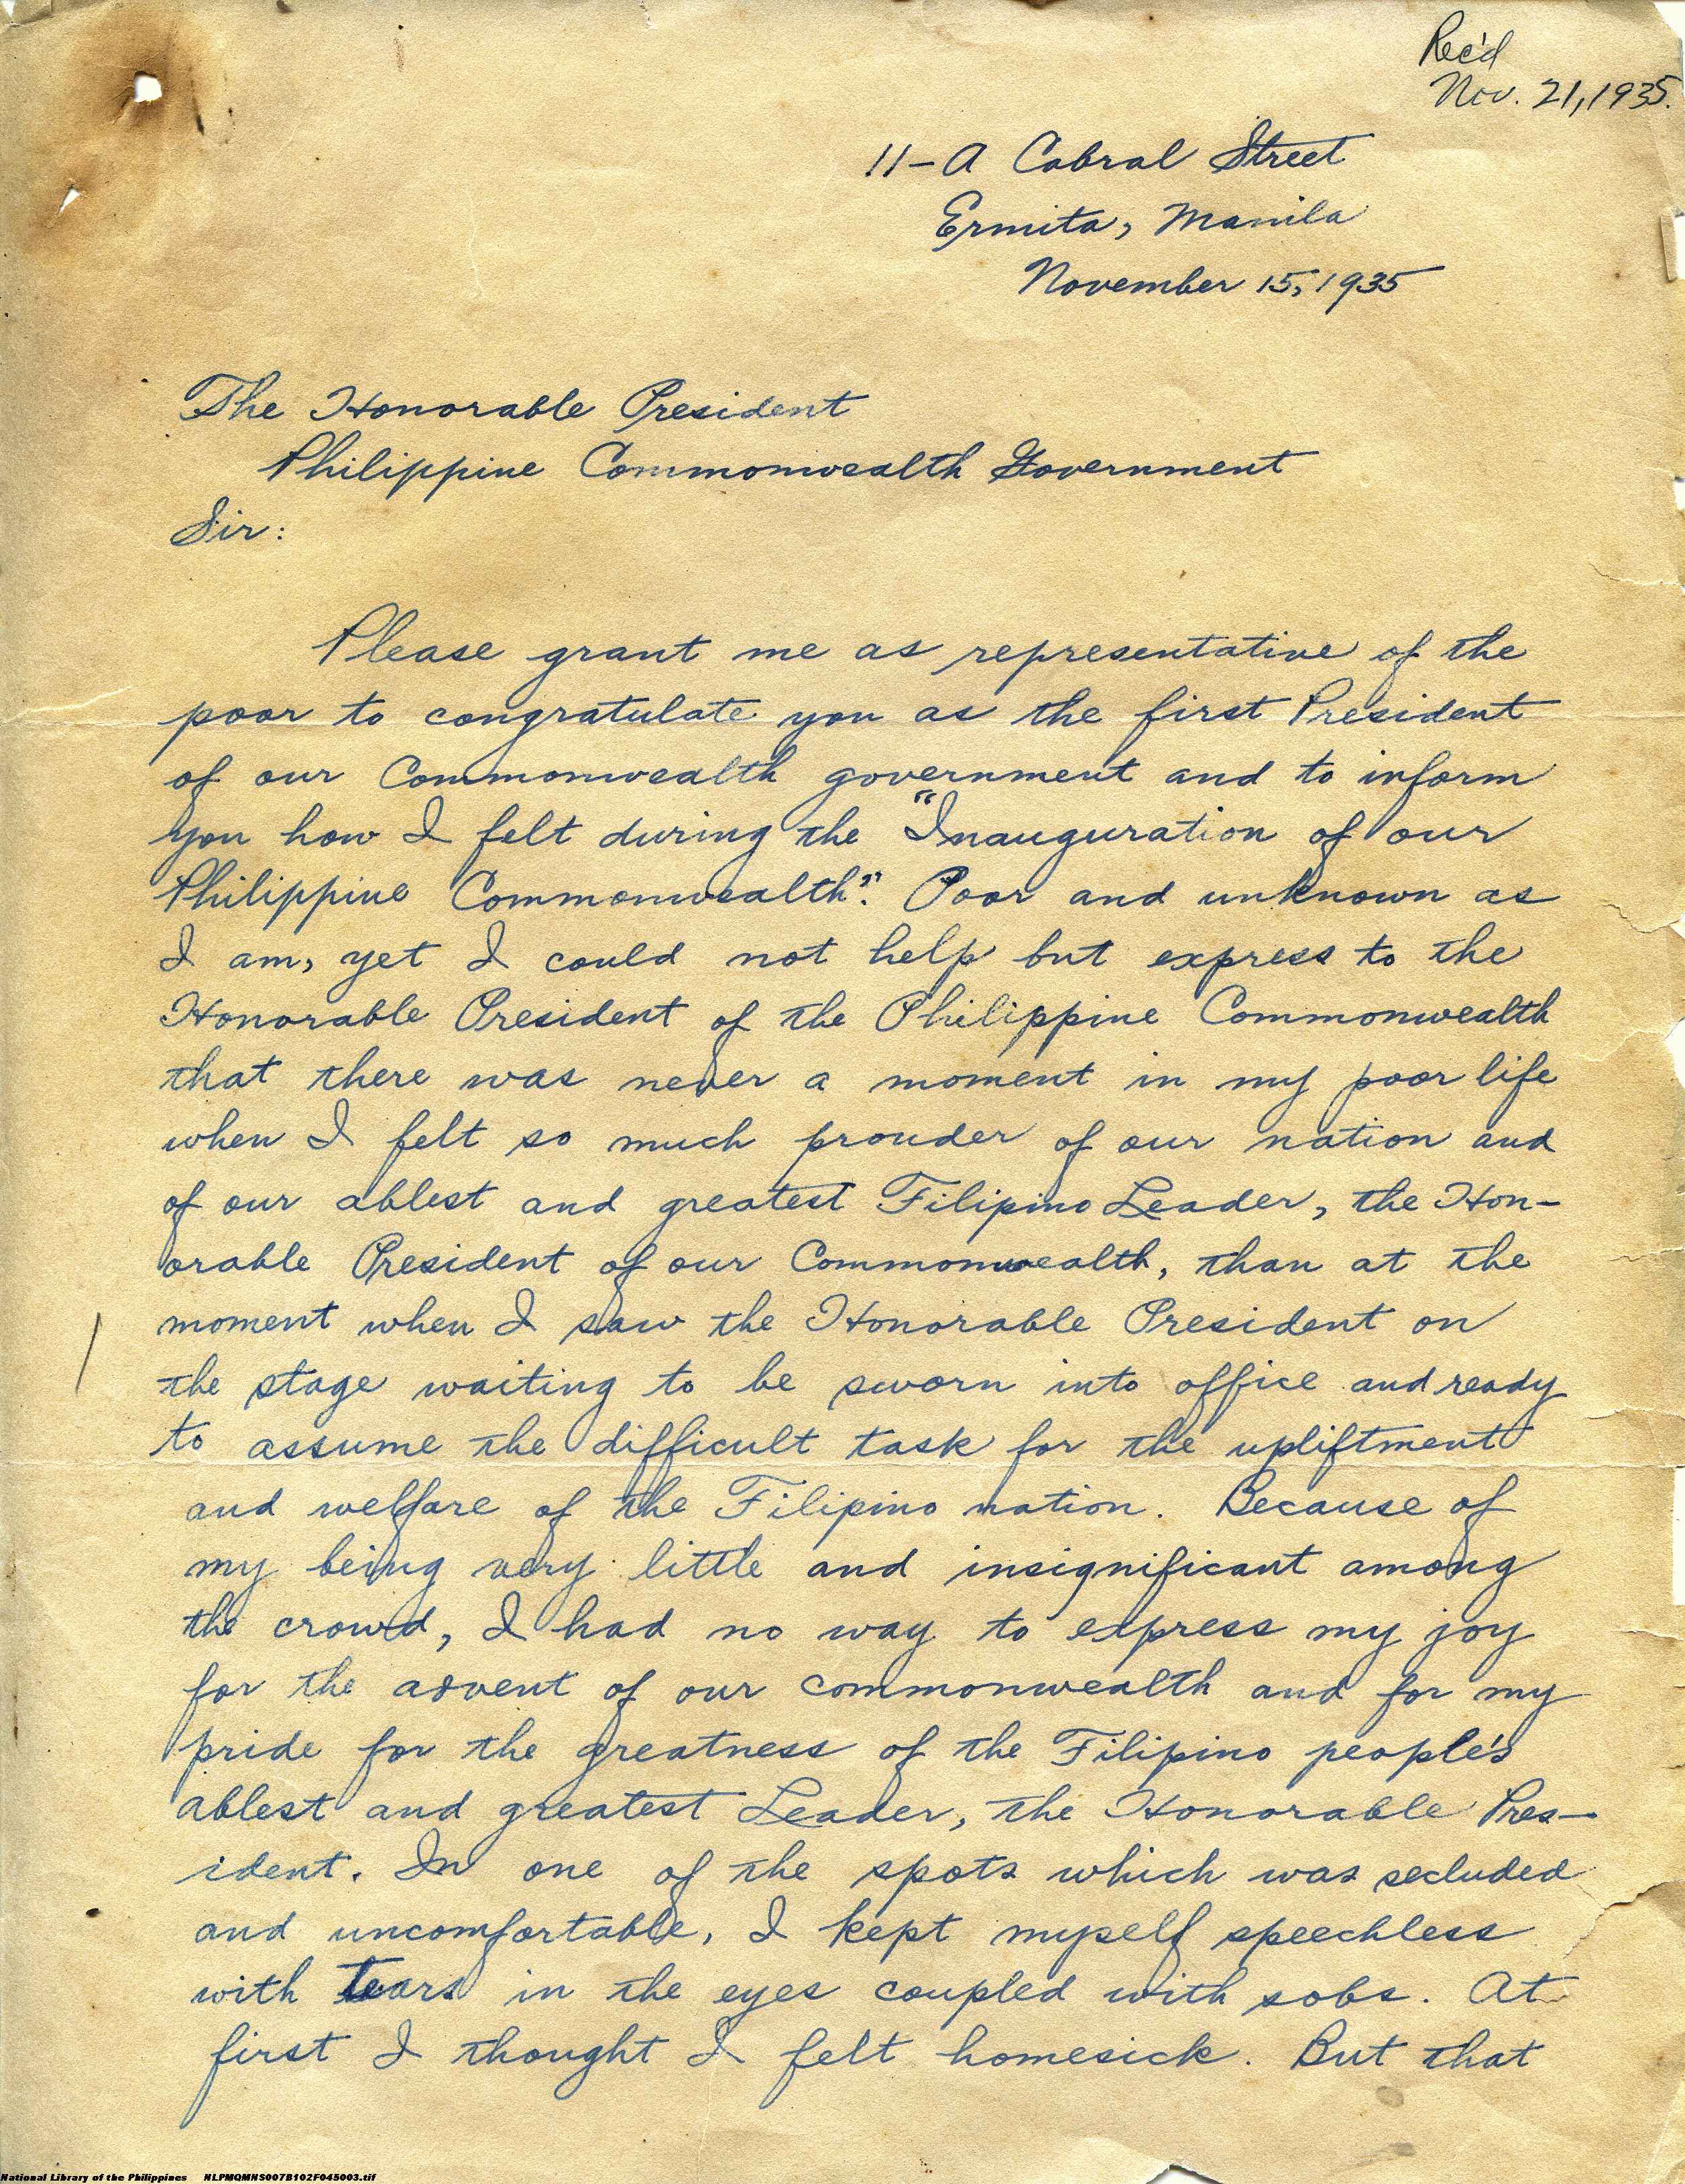 Rec'd
Nov. 21, 1935.
11-A Cabral Street
Ermita, Manila
November 15, 1935
The Honorable President
Philippine Commonwealth Government
Sir:
Please grant me as representative of the
poor to congratulate you as the first President
of our Commonwealth government and to inform
you how I felt during the "Inauguration of our
Philippine Commonwealth". Poor and unknown as
I am, yet I could not help but express to the
Honorable President of the Philippine Commonwealth
that there was never a moment in my poor life
when I felt so much prouder of our nation and
of our ablest and greatest Filipino Leader, the Hon-
orable President of our Commonwealth, than at the
moment when I saw the Honorable President on
the stage waiting to be sworn into office and ready
to assume the difficult task for the upliftment
and welfare of the Filipino nation. Because of
my being very little and insignificant among
the crowd, I had no way to express my joy
for the advent of our commonwealth and for my
pride for the greatness of the Filipino people's
ablest and greatest Leader, the Honorable Pres-
ident. In one of the spots which was secluded
and uncomfortable, I kept myself speechless
with tears in the eyes coupled with sobs. At
first I thought I felt homesick. But that
National Library of the Philippines NLPMQMNS007B102F045003.tif